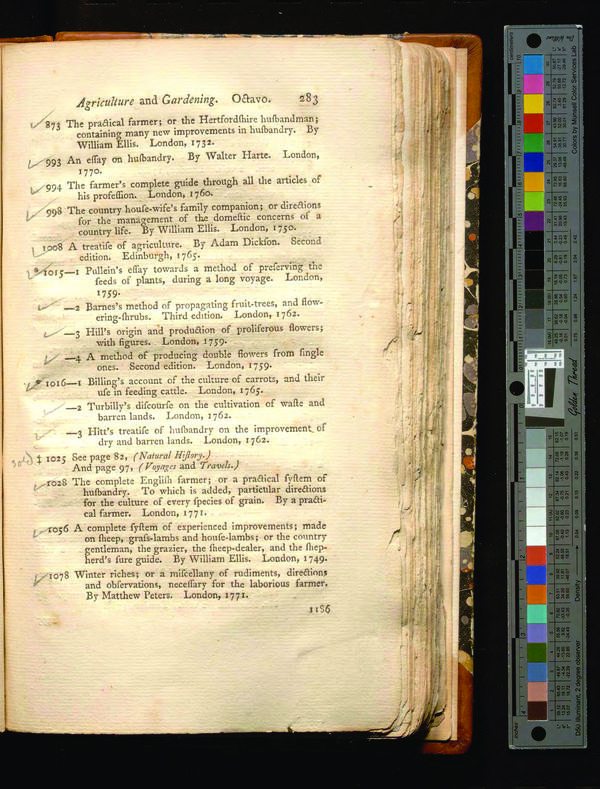 Agriculture and Gardening. Octavo. 283
873 The practical farmer; or the Hertfordſhire huſbandman;
containing many new improvements in huſbandry. By
William Ellis. London, 1732.
993 An eſſay on huſbandry. By Walter Harte. London,
1770.
994 The farmer's complete guide through all the articles of
his profeſſion. London, 1760.
998 The country houſe-wife's family companion; or directions
for the management of the domeſtic concerns of a
country life. By William Ellis. London, 1750.
1008 A treatiſe of agriculture. By Adam Dickſon. Second
edition. Edinburgh, 1765.
* 1015—1 Pullein's eſſay towards a method of preſerving the
ſeeds of plants, during a long voyage. London,
1759.
—2 Barnes's method of propagating fruit-trees, and flow-
ering-ſhrubs. Third edition. London, 1762.
—3 Hill's origin and production of proliferous flowers;
with figures. London, 1759.
—4 A method of producing double flowers from ſingle
ones. Second edition. London, 1759.
* 1016—1 Billing's account of the culture of carrots, and their
uſe in feeding cattle. London, 1765.
—2 Turbilly's diſcourſe on the cultivation of waſte and
barren lands. London, 1762.
—3 Hitt's treatiſe of huſbandry on the improvement of
dry and barren lands. London, 1762.
‡ 1025 See page 82, (Natural Hiſtory.)
And page 97, (Voyages and Travels.)
1028 The complete Engliſh farmer; or a practical ſyſtem of
huſbandry. To which is added, particular directions
for the culture of every ſpecies of grain. By a practi-
cal farmer. London, 1771.
1056 A complete ſyſtem of experienced improvements; made
on ſheep, graſs-lambs and houſe-lambs; or the country
gentleman, the grazier, the ſheep-dealer, and the ſhep-
herd's ſure guide. By William Ellis. London, 1749.
1078 Winter riches; or a miſcellany of rudiments, directions
and obſervations, neceſſary for the laborious farmer.
By Matthew Peters. London, 1771.
1186
Colors by Munsell Color Services Lab
Golden Thread
Density
D50 Illuminant, 2 degree observer